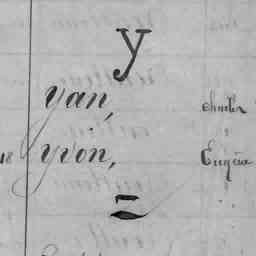 y
Yan, Charles
18 Yvon, Eugène